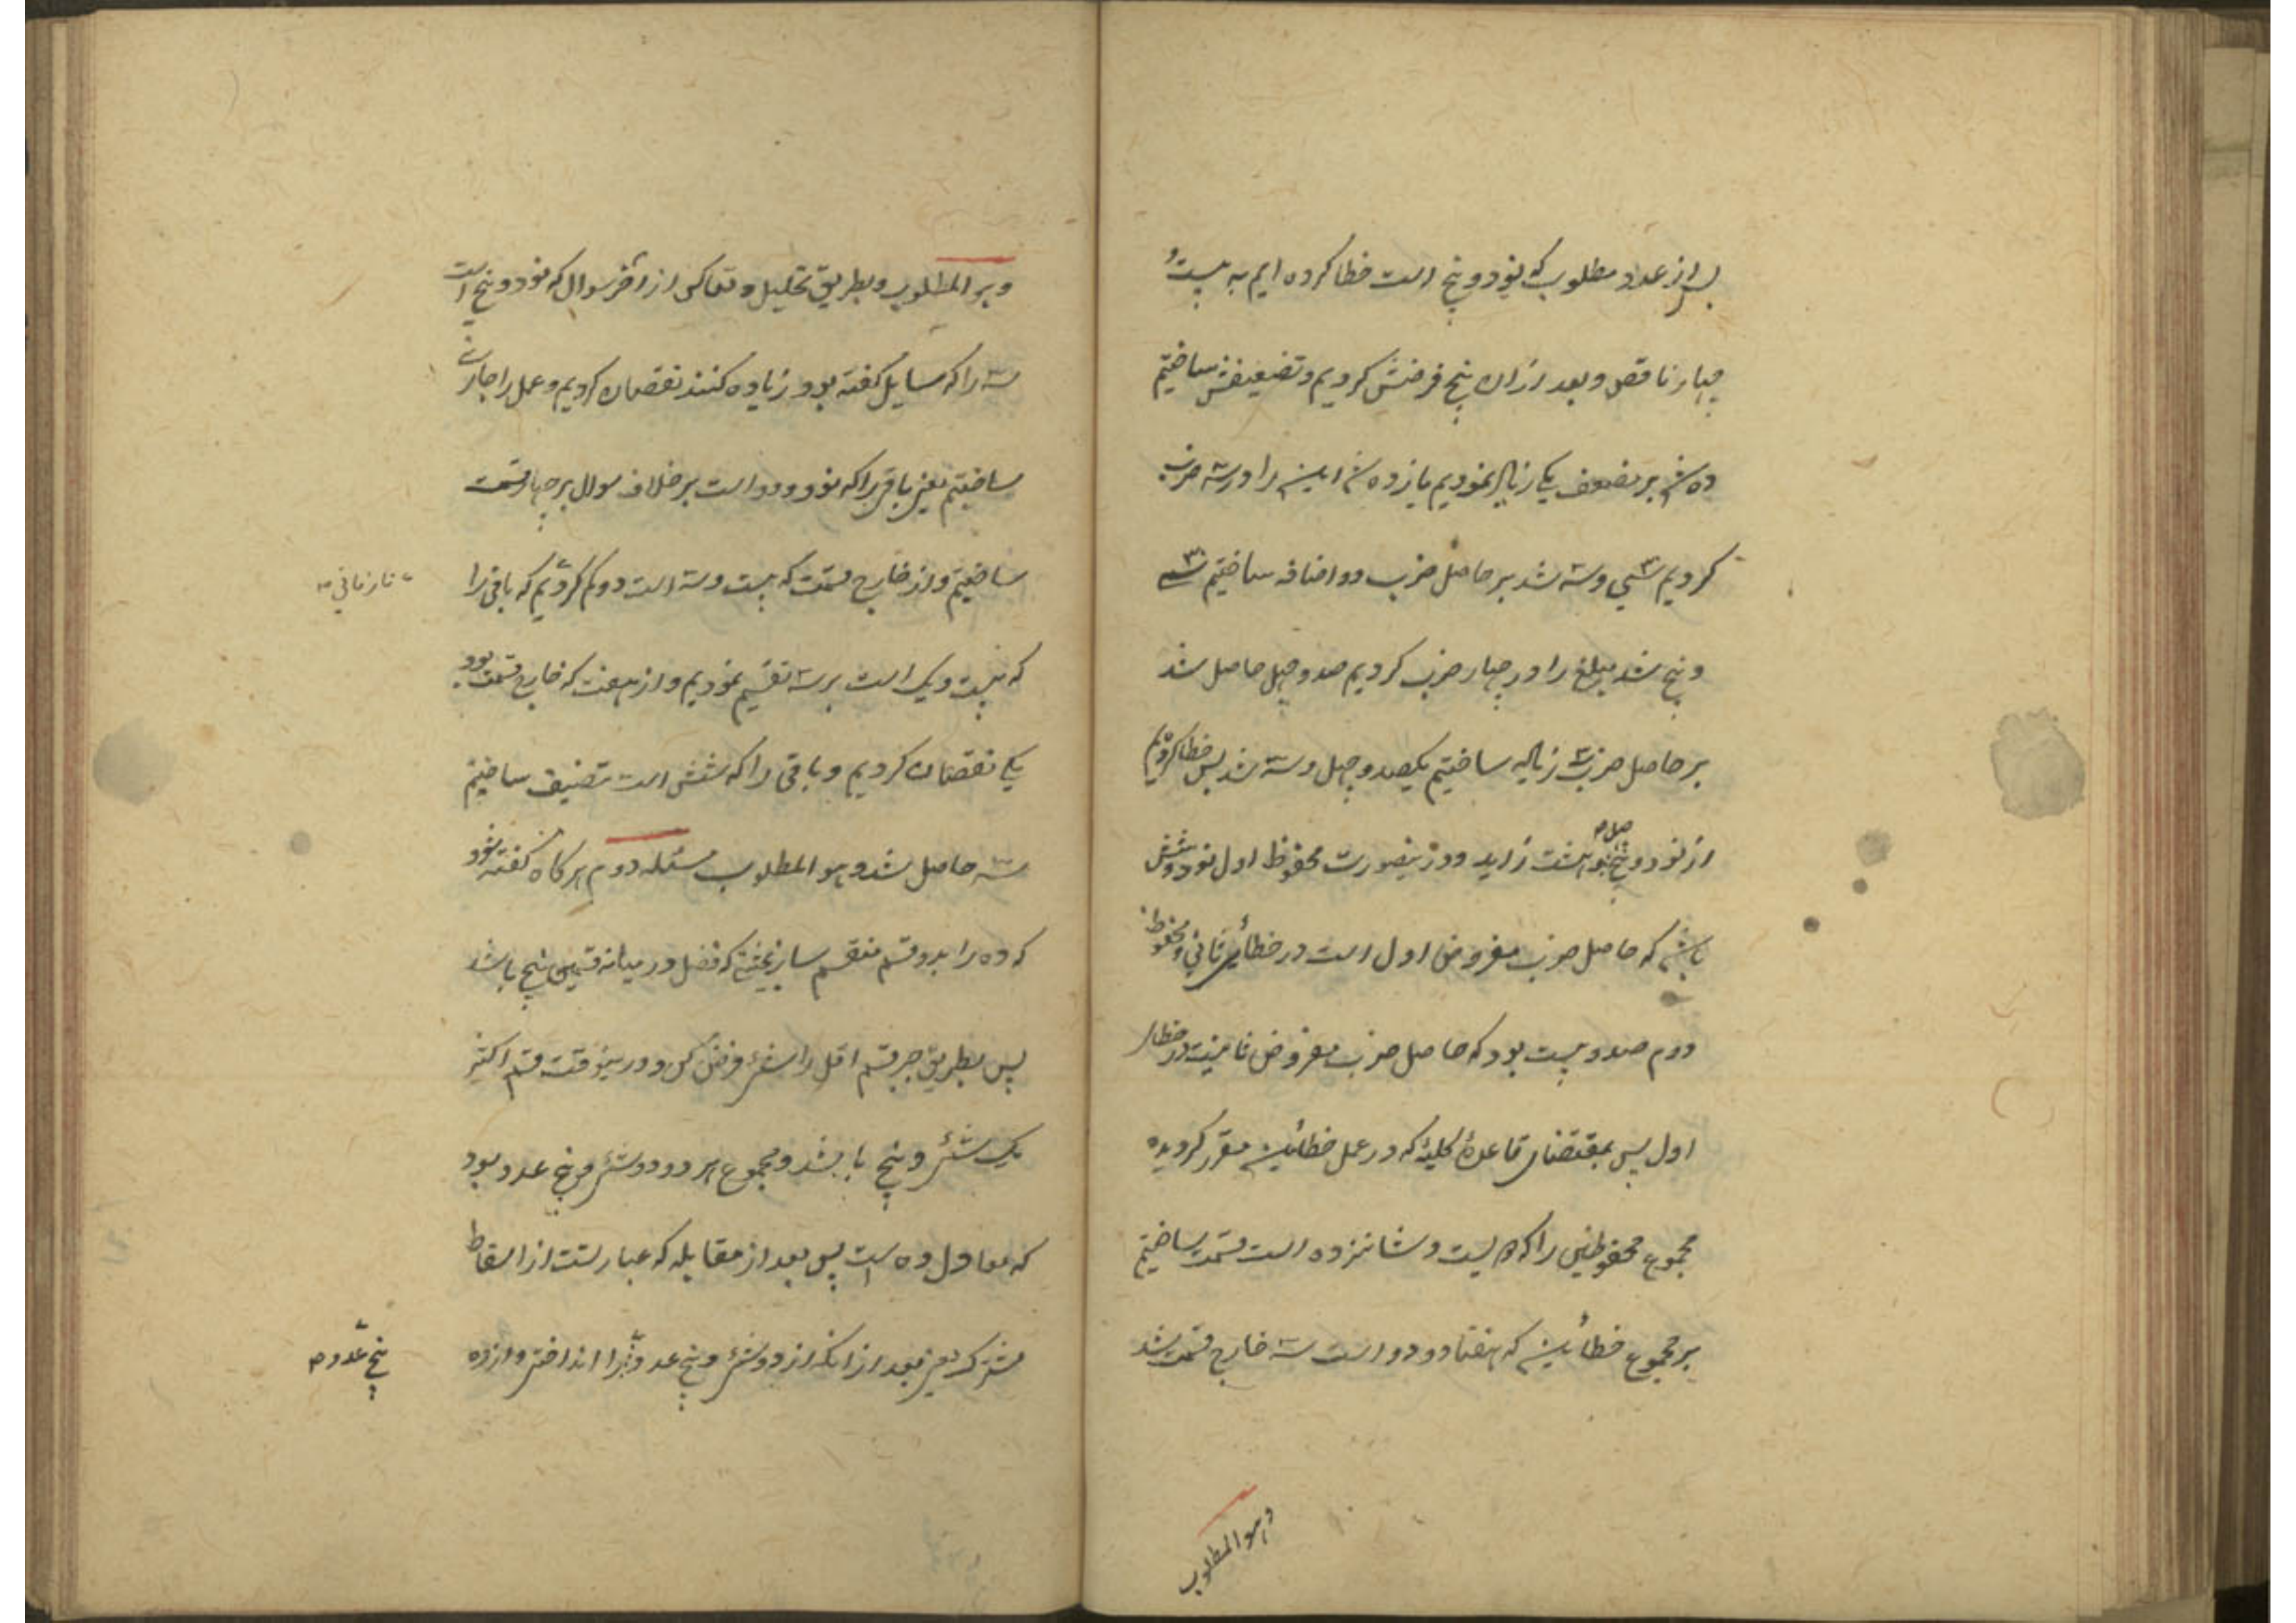 پس از عدد مطلوب که نود و پنج است خطا کرده ایم به بیست و
چهار ناقص و بعد ازان پنج فرضش کردیم و تضعیفش ساختیم
ده شد بر مضعف یکی زیاد نمودیم یازده شد این را در سه ضرب
کردیم سی و سه شد بر حاصل ضرب دو اضافه ساختیم سی
و پنج شد مبلغ را در چهار ضرب کردیم صد و چهل حاصل شد
بر حاصل ضرب سه زیاده ساختیم یکصد و چهل و سه شد پس خطا کردیم
از نود و پنج بچهل و هشت زاید و درینصورت محفوظ اول نود و شش
باشد که حاصل ضرب مفروض اول است در خطأ ثانی و محفوظ
دوم صد و بیست بود که حاصل ضرب مفروض ثانیست در خطاء
اول پس بمقتضای قاعدهٔ کلیهٔ که در عمل خطائین مقرر گردیده
مجموع محفوظین را که دویست و شانزده است قسمت ساختیم
بر مجموع خطائین که هفتاد و دو است سه خارج قسمت شد
وهو المطلوب
وهو المطلوب و بطریق تحلیل و تعاکس از آخر سوال که نود و پنج است
سه را که سایل گفته بود زیاده کنند نقصان کردیم و عمل را جاری
ساختیم یعنی باقی را که نود و دو است بر خلاف سوال بر چهار قسمت
ساختیم و از خارج قسمت که بیست و سه است دو کم کردیم که باقی را
که بیست و یک است بر سه تقسیم نمودیم و از هفت که خارج قسمت بود
یکی نقصان کردیم و باقی را که شش است تنصیف ساختیم
سه حاصل شد و هو المطلوب مسئله دوم هرگاه گفته شود
که ده را بدو قسم منقسم ساز بحیثی که فضل در میانه قسمین پنج باشد
پس بطریق جبر قسم اقل را شئ فرض کن و درینوقت قسم اکثر
یک شئ و پنج باشد و مجموع هر دو دو شئ و پنج عدد بود
که معادل ده است پس بعد از مقابله که عبارتست از اسقاط
مشترک یعنی بعد ازانکه از دو شئ و پنج عدد پنج را انداختی و از ده
پنج عدد